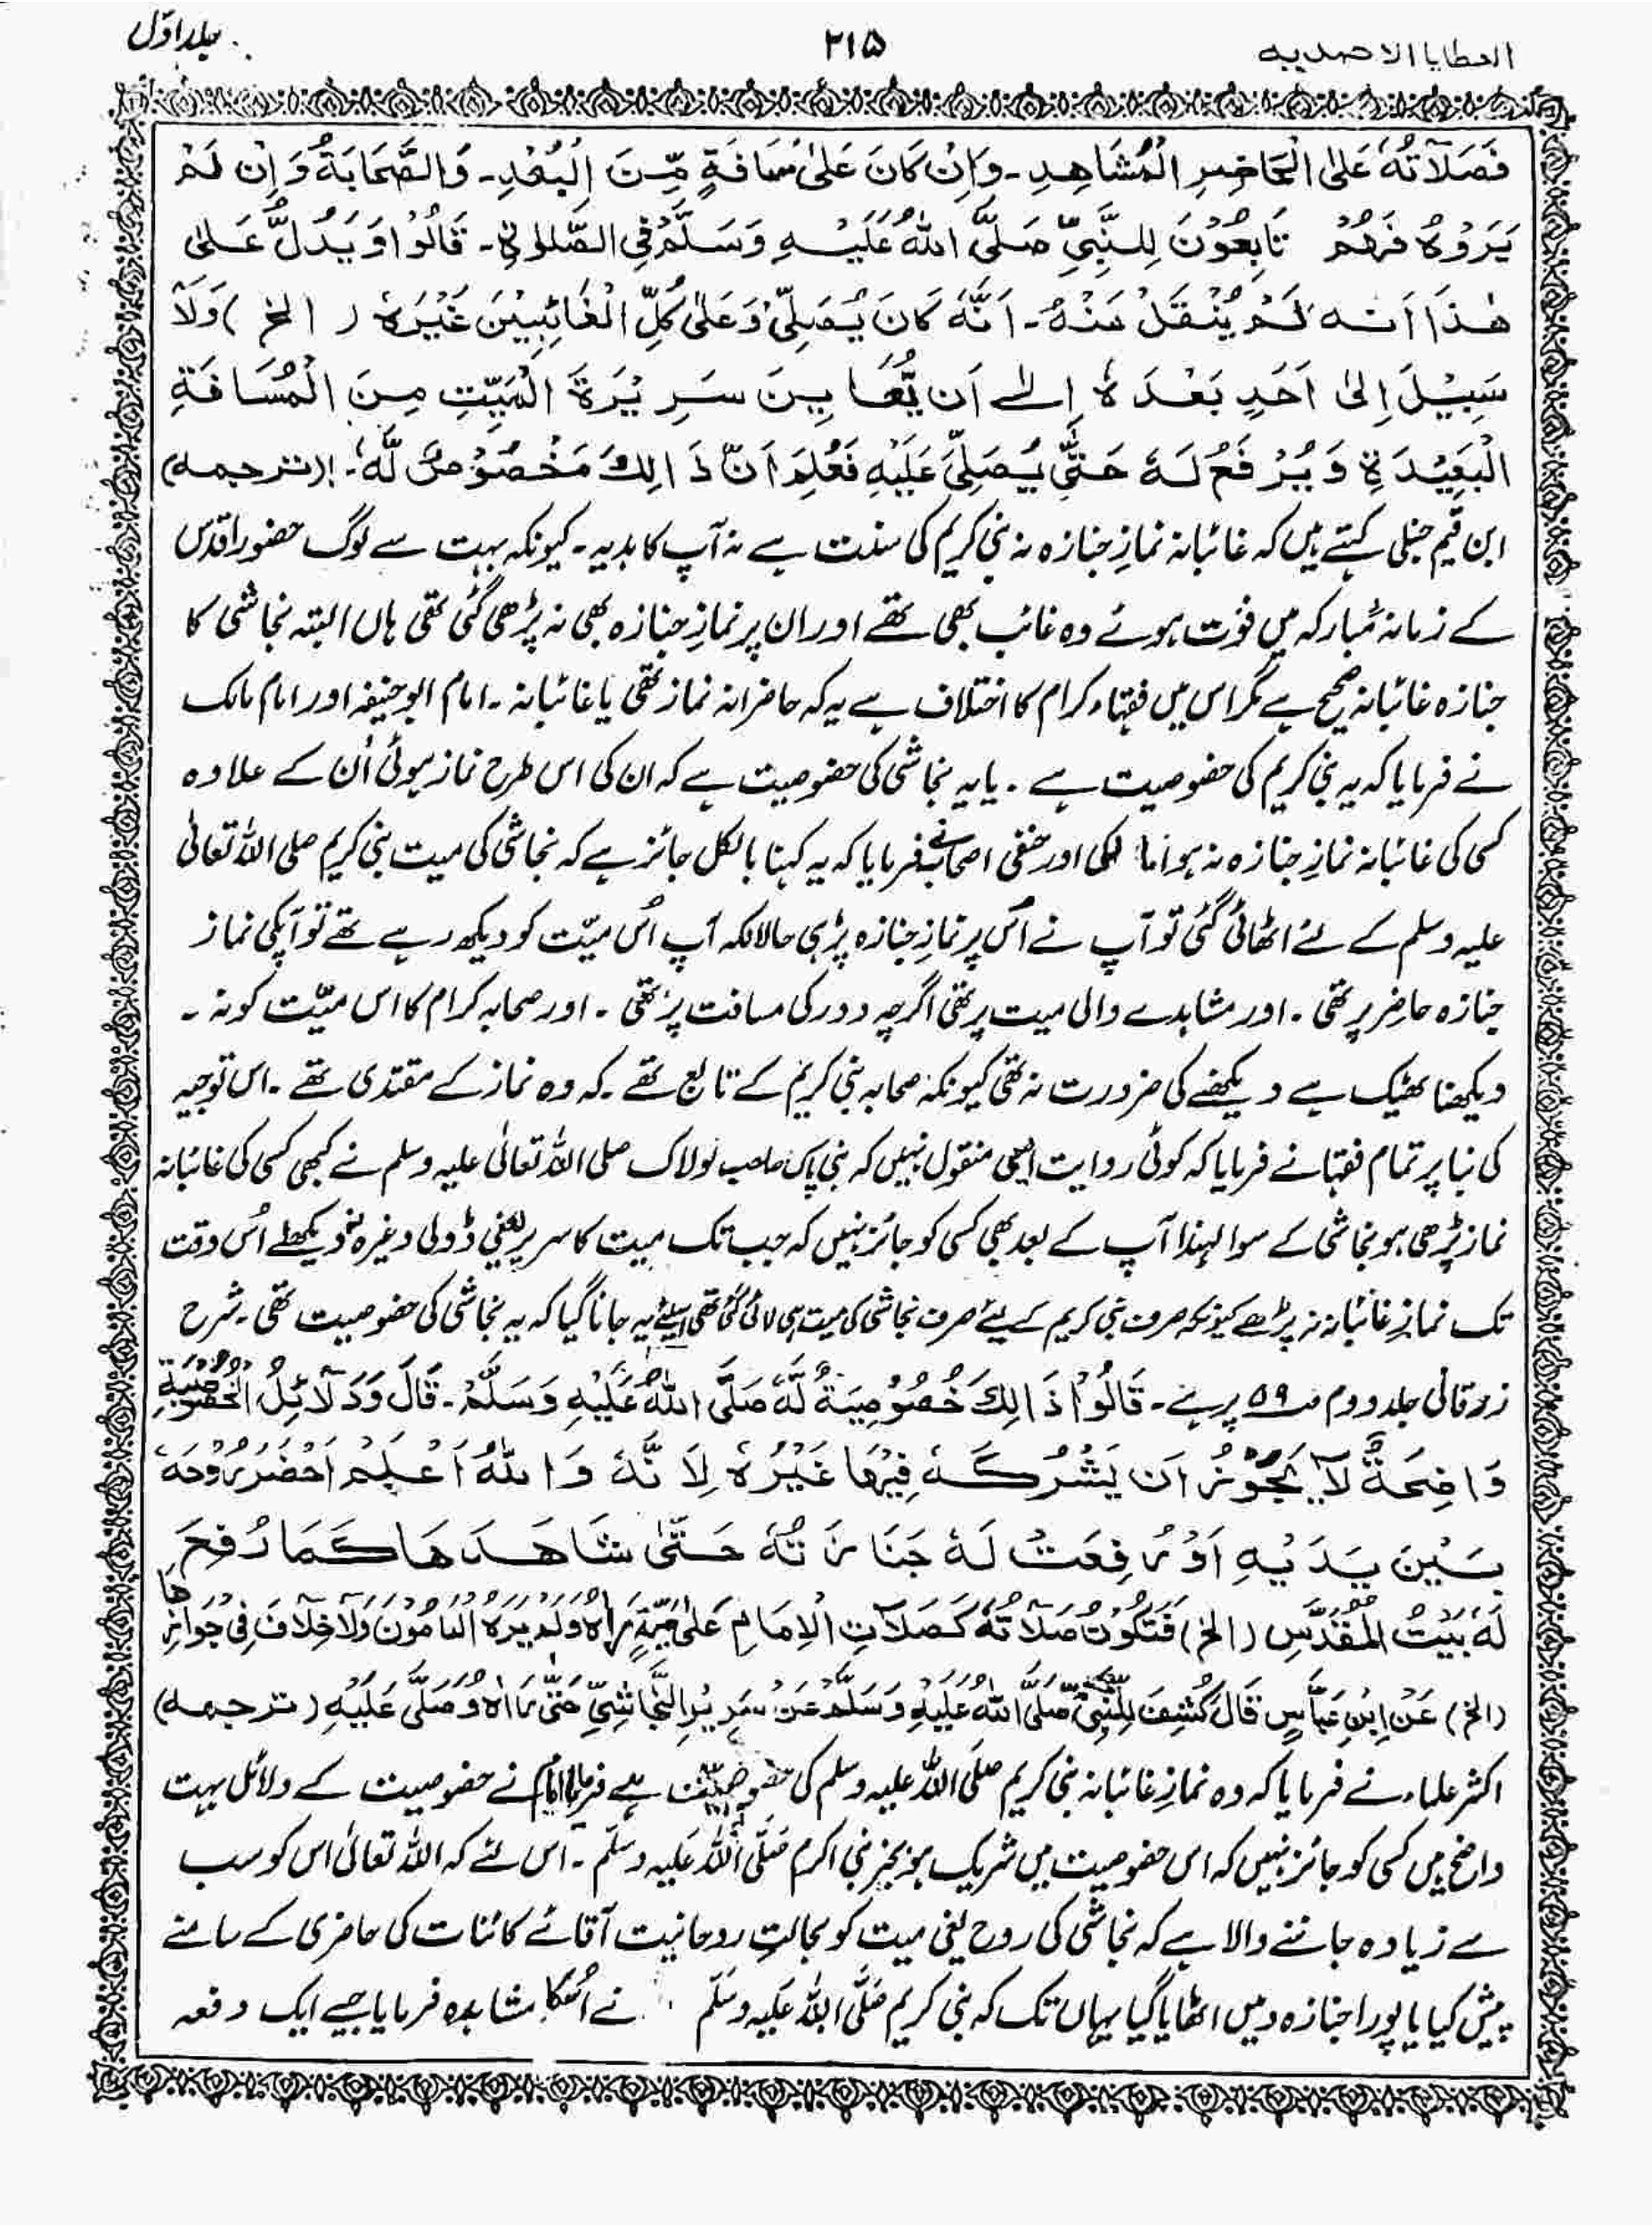 العطایا الاحمدیہ ۲۱۵ جلد اوّل
فَصَلَاتُہٗ عَلَی الْحَاضِرِ الْمُشَاھِدِ۔ وَاِنْ کَانَ عَلٰی مَسَافَةٍ مِّنَ الْبُعْدِ۔ وَالصَّحَابَةُ وَاِنْ لَمْ
یَرَوْہُ فَھُمْ تَابِعُوْنَ لِلنَّبِیِّ صَلَّی اللّٰہُ عَلَیْہِ وَسَلَّمَ فِی الصَّلٰوۃِ۔ قَالُوْا وَیَدُلُّ عَلٰی
ھٰذَا اَنَّہ لَمْ یُنْقَلْ مَنْہُ۔ اَنَّہٗ کَانَ یُصَلِّیْ وَعَلٰی کُلِّ الْغَائِبِیْنَ غَیْرَہٗ ( الخ ) وَلَآ
سَبِیْلَ اِلٰی اَحَدٍ بَعْدَہٗ اِلٰے اَن یُّعَا یِنَ سَرِ یْرَۃَ الْمَیِّتِ مِنَ الْمُسَافَةِ
الْبَعِیْدَۃِ وَیُرْفَعُ لَہٗ حَتّٰی یُصَلِّیَ عَلَیْہِ فَعُلِمَ اَنَّ ذَالِکَ مَخْصُوْصٌ لَّہٗ۔ (ترجمہ)
ابن قیم حنبلی کہتے ہیں کہ غائبانہ نمازِ جنازہ نہ نبی کریم کی سنت ہے نہ آپ کا ہدیہ۔ کیونکہ بہت سے لوگ حضور اقدس
کے زمانہ مُبارکہ میں فوت ہوئے وہ غائب بھی تھے اور ان پر نمازِ جنازہ بھی نہ پڑھی گئی تھی ہاں البتہ نجاشی کا
جنازہ غائبانہ صحیح ہے مگر اس میں فقہاء کرام کا اختلاف ہے یہ کہ حاضرانہ نماز تھی یا غائبانہ۔ امام ابوحنیفہ اور امام مالک
نے فرمایا کہ یہ نبی کریم کی خصوصیت ہے ۔ یا یہ نجاشی کی خصوصیت ہے کہ ان کی اس طرح نماز ہوئی اُن کے علاوہ
کسی کی غائبانہ نمازِ جنازہ نہ ہو اور حنفی اصحاب نے فرمایا کہ یہ کہنا بالکل جائز ہے کہ نجاشی کی میت نبی کریم صلی اللہ تعالیٰ
علیہ وسلم کے لئے اٹھائی گئی تو آپ نے اُس پر نمازِ جنازہ پڑہی حالانکہ آپ اُس میّت کو دیکھ رہے تھے تو آپکی نماز
جنازہ حاضر پر تھی ۔ اور مشاہدے والی میت پر تھی اگرچہ دور کی مسافت پر تھی ۔ اور صحابہ کرام کا اس میّت کو نہ ۔
دیکھنا ٹھیک ہے دیکھنے کی ضرورت نہ تھی کیونکہ صحابہ نبی کریم کے تابع تھے ۔ کہ وہ نماز کے مقتدی تھے ۔ اس توجیہ
کی بنا پر تمام فقہا نے فرمایا کہ کوئی روایت ایسی منقول نہیں کہ نبی پاک صاحب لولاک صلی اللہ تعالیٰ علیہ وسلم نے کبھی کسی کی غائبانہ
نماز پڑھی ہو نجاشی کے سوا لہذا آپ کے بعد بھی کسی کو جائز نہیں کہ جب تک میت کا سریر یعنی ڈولی وغیرہ نہ دیکھ لے اُس وقت
تک نمازِ غائبانہ نہ پڑھے کیونکہ صرف نبی کریم کے لیئے صرف نجاشی کی میت ہی لائی گئی تھی اسلئے یہ جانا گیا کہ یہ نجاشی کی خصوصیت تھی ۔ شرح
زرقانی جلد دوم ص ۵۹ پر ہے ۔ قَالُوْا ذَالِکَ خُصُوْصِیَةٌ لَّہٗ صَلَّی اللّٰہُ عَلَیْہِ وَسَلَّمَ۔ قَالَ وَدَلَآئِلُ الْخُصُوْصِیَّةِ
وَاضِحَةٌ لَّا یَجُوْزُ اَن یَشْرُکَہٗ فِیْھَا غَیْرُہٗ لِاَنَّہٗ وَاللّٰہُ اَعْلَمُ اَحْضَرَ رُوْحَہٗ
بَیْنَ یَدَیْہِ اَوْ رُفِعَتْ لَہٗ جَنَازَتُہٗ حَتّٰی شَاھَدَھَا کَمَا رُفِعَ
لَہٗ بَیْتُ الْمُقَدَّسِ (الخ) فَتَکُوْنُ صَلَاتُہٗ کَصَلَاتِ الْاِمَامِ عَلٰی مَیِّتٍ رَاٰہُ وَلَمْ یَرَہُ الْمَامُوْنَ وَلَا خِلَافَ فِیْ جَوَازِھَا
(الخ) عَنْ اِبْنِ عَبَّاسٍ قَالَ کُشِفَ لِلنَّبِیِّ صَلَّی اللّٰہُ عَلَیْہِ وَسَلَّمَ عَنْ سَرِیْرِ النَّجَاشِیِّ حَتّٰی رَاٰہُ وَصَلّٰی عَلَیْہِ (ترجمہ)
اکثر علماء نے فرمایا کہ وہ نمازِ غائبانہ نبی کریم صلَی اللہ علیہ وسلم کی خصوصیت ہے فرمایا امام نے خصوصیت کے دلائل بہت
واضح ہیں کسی کو جائز نہیں کہ اس خصوصیت میں شریک ہو بجز نبی اکرم صَلَّی اللّٰہ عَلَیہ وسلّم ۔ اس لئے کہ اللہ تعالیٰ اس کو سب
سے زیادہ جاننے والا ہے کہ نجاشی کی روح یعنی میت کو بحالتِ روحانیت آقائے کائنات کی حاضری کے سامنے
پیش کیا یا پورا جنازہ وہیں اٹھایا گیا یہاں تک کہ نبی کریم صَلَّی اللّٰہ عَلَیہ وسلّم نے اُسکا مشاہدہ فرمایا جیسے ایک دفعہ